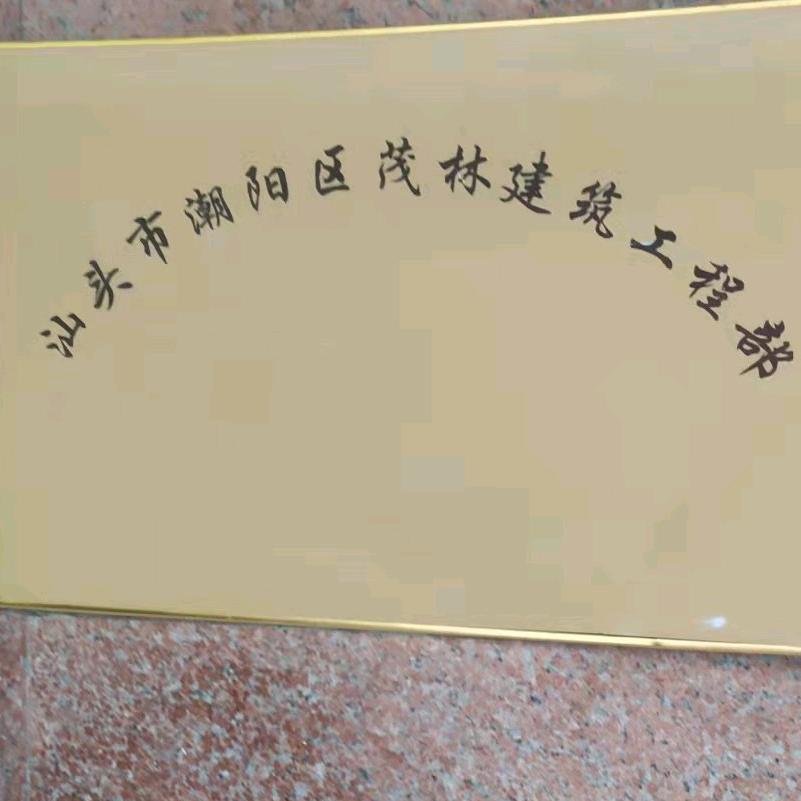 汕头市潮阳区茂林建筑工程部